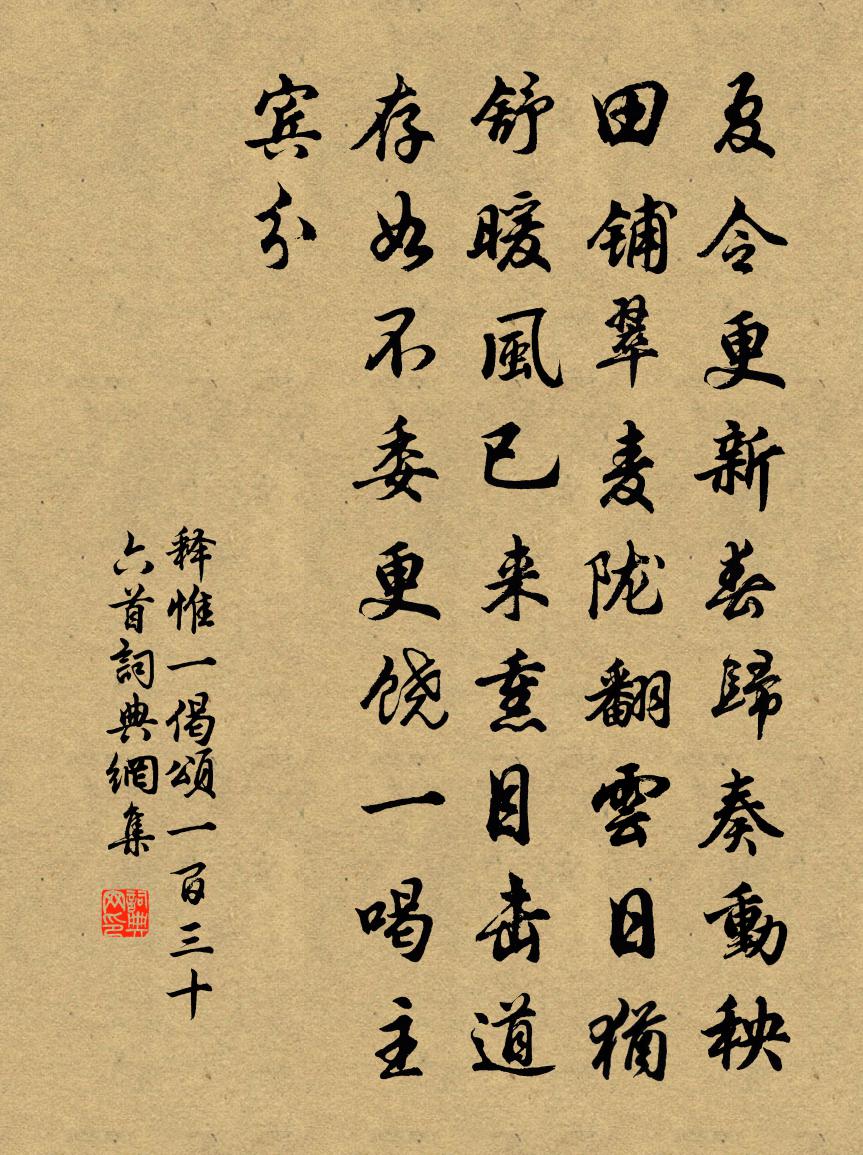 夏令更新春歸奏動秧
田铺翠麦陇翻雲日猶
舒暖風已来熏目击道
存如不委更饶一喝主
宾分
释惟一偈頌一百三十
六首詞典網集
詞典
网印